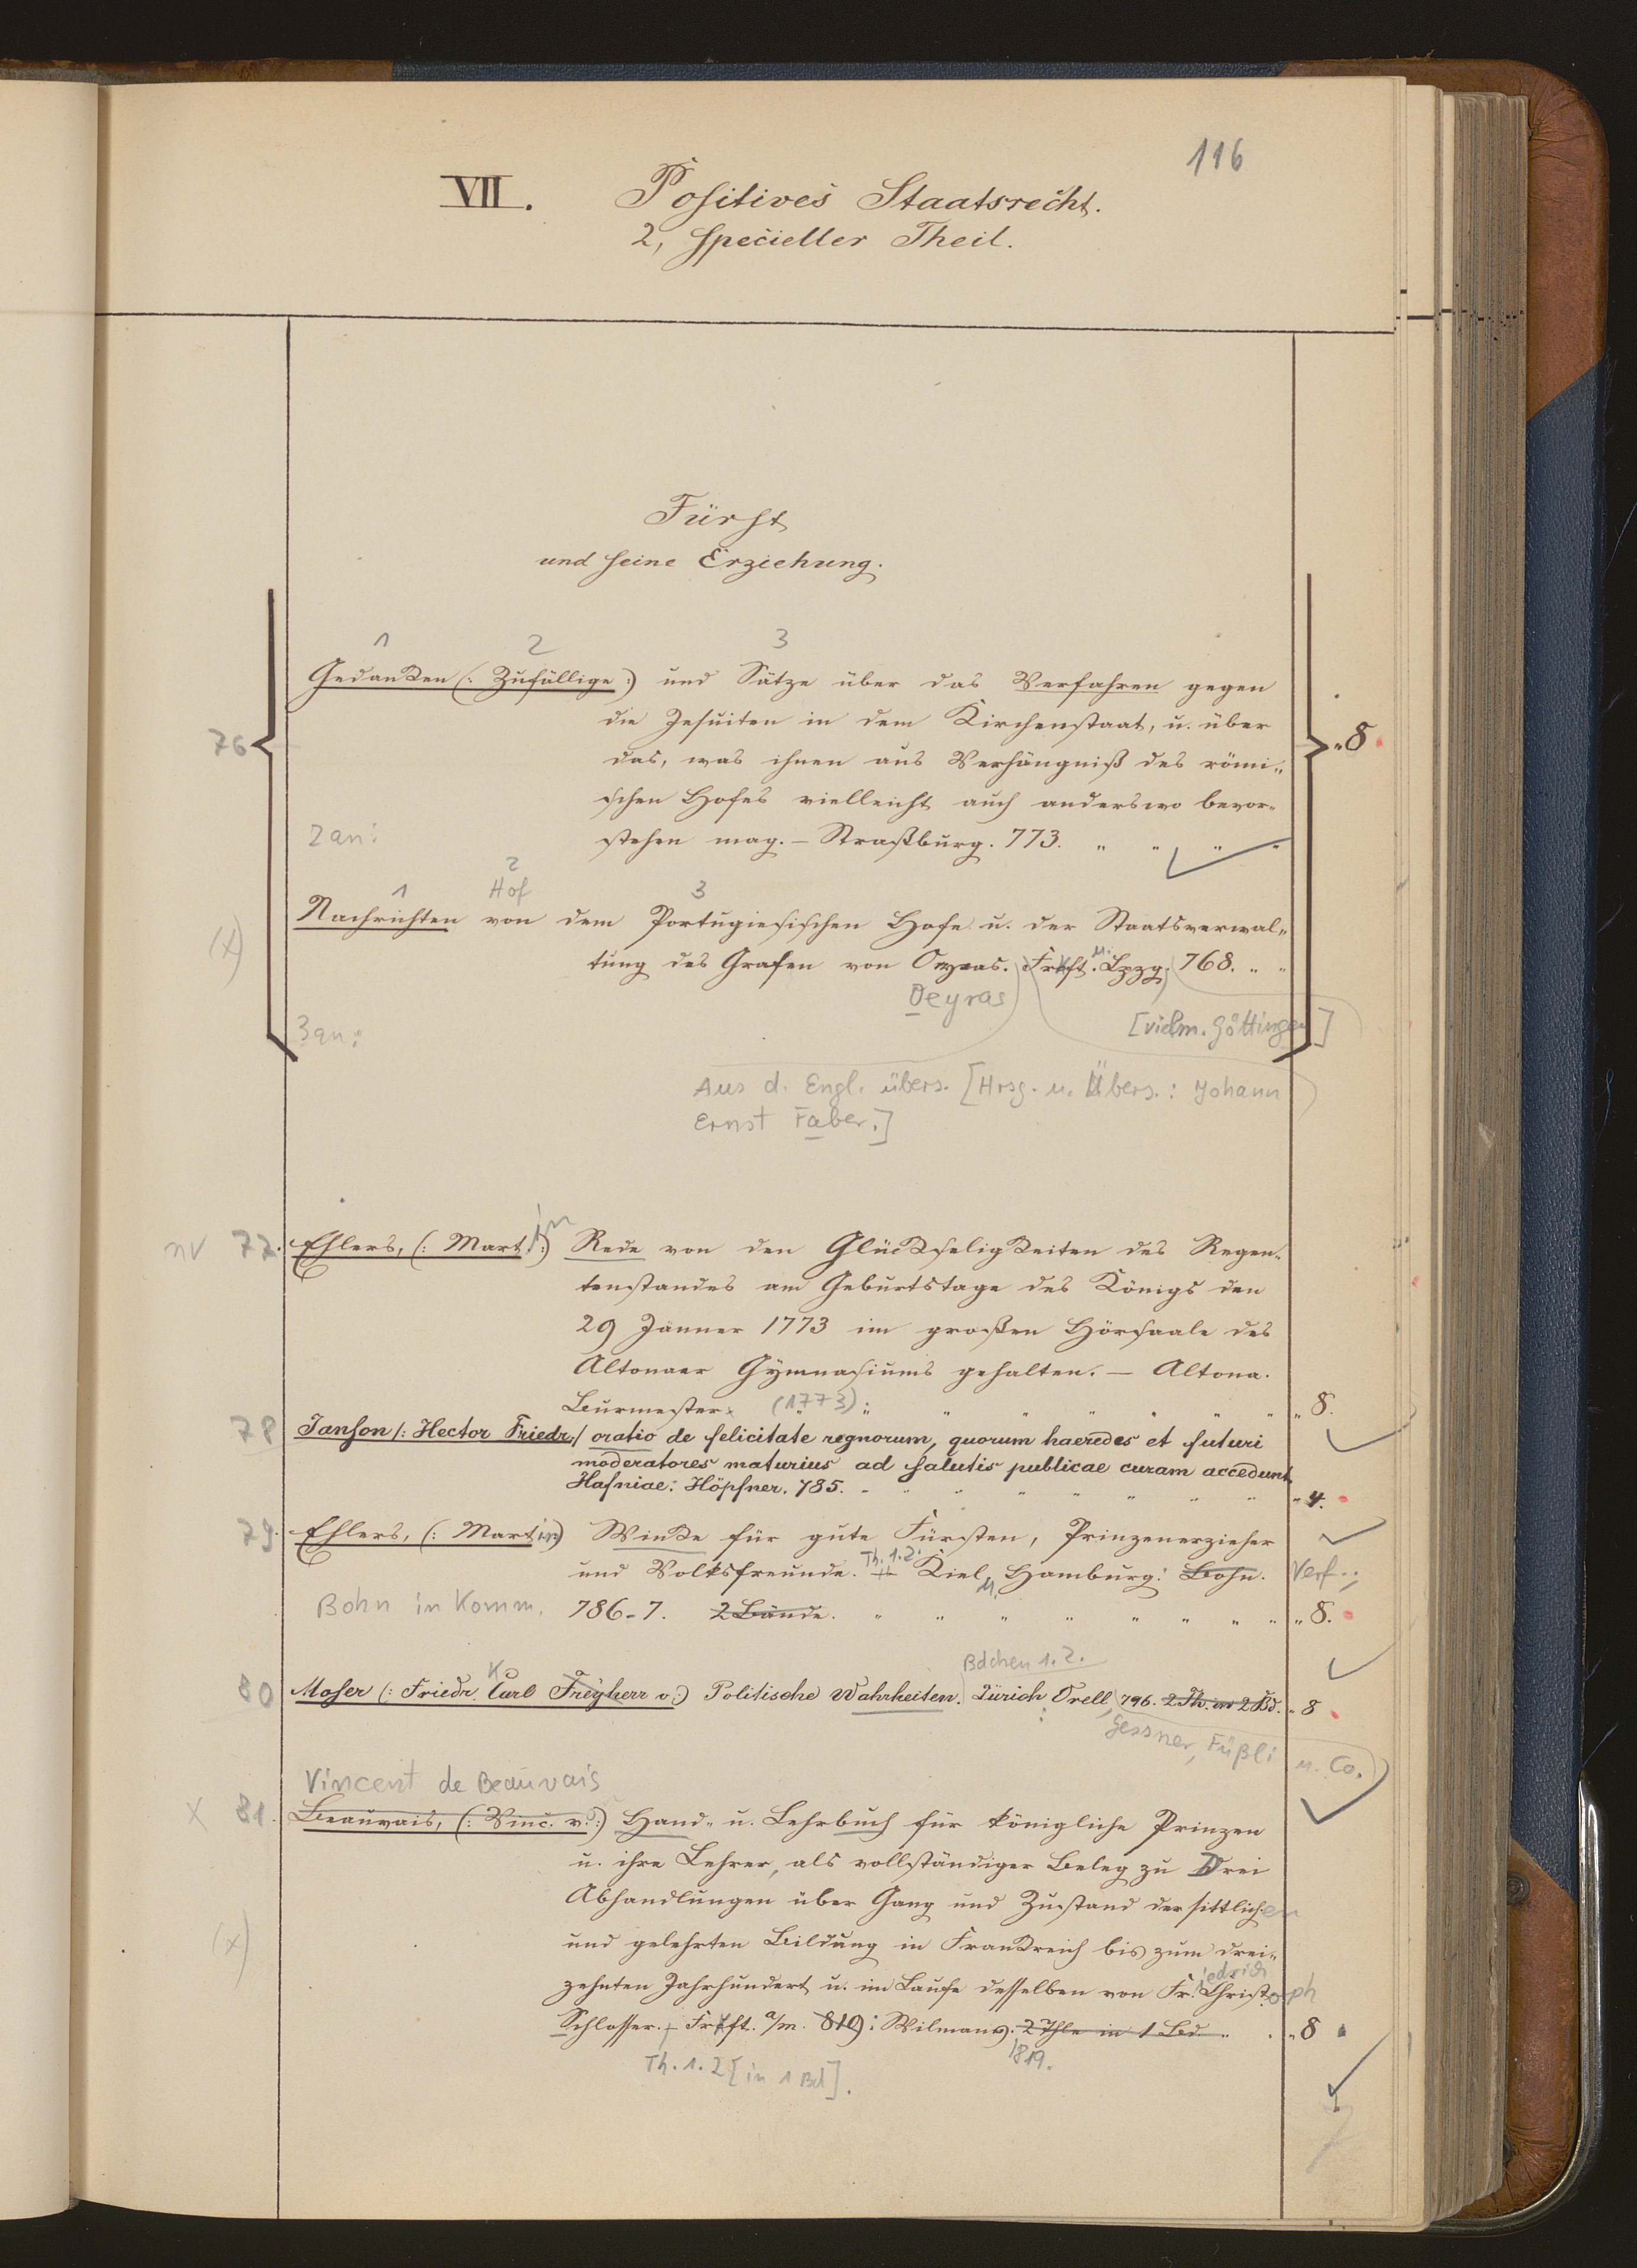 116
VII. Positives Staatsrecht.
2, specieller Theil.
Fürst
und seine Erziehung.
1 2 3
Gedanken (: Zufällige :) und Sätze über das Verfahren gegen
die Jesuiten in dem Kirchenstaat, u. über
76 „ 8
das, was ihnen aus Verhängniß des römi-
schen Hofes vielleicht auch anderswo bevor-
2 an: stehen mag. – Straßburg. 773. „ „ „ „
2
1 Hof 3
Nachrichten von dem Portugiesischen Hofe u. der Staatsverwal-
(x)
tung des Grafen von Oeyras. Frkft. u. Lpzg. 768. „ „
Oeyras
3 an: [vielm. Göttingen]
Aus d. Engl. übers. [Hrsg. u. Übers.: Johann
Ernst Faber.]
nv 77. Ehlers, (: Martin :) Rede von den Glückseligkeiten des Regen-
tenstandes am Geburtstage des Königs den
29 Jänner 1773 im großen Hörsaale des
Altonaer Gymnasiums gehalten. — Altona.
Burmester. (1773) „ „ „ „ „ „ „ 8.
78 Janson /: Hector Friedr. :/ oratio de felicitate regnorum, quorum haeredes et futuri
moderatores maturius ad salutis publicae curam accedunt
Hafniae: Höpfner. 785. „ „ „ „ „ „ „ „ 4.
79. Ehlers, (: Martin) Winke für gute Fürsten, Prinzenerzieher
und Volksfreunde. Th. 1.2. Kiel u. Hamburg: Bohn. Verf.;
Bohn in Komm. 786-7. 2 Bände. „ „ „ „ „ „ „ „ 8.
Bdchen 1. 2.
80 Moser (: Friedr. Carl K Freyherr v. :) Politische Wahrheiten. Zürich: Orell, 796. 2 Th. in 2 Bd. „ 8
Gessner, Füßli u. Co.
Vincent de Beauvais
x 81. Beauvais, (: Vinc. v. :) Hand- u. Lehrbuch für königliche Prinzen
u. ihre Lehrer, als vollständiger Beleg zu Drei
Abhandlungen über Gang und Zustand der sittlichen
(x) und gelehrten Bildung in Frankreich bis zum drei-
zehnten Jahrhundert u. im Laufe desselben von Friedrich Christoph
Schlosser. – Frkft. a/m. 819: Wilmans. 2 Thle in 1 Bd. „ „ 8
1819.
Th. 1. 2 [in 1 Bd].